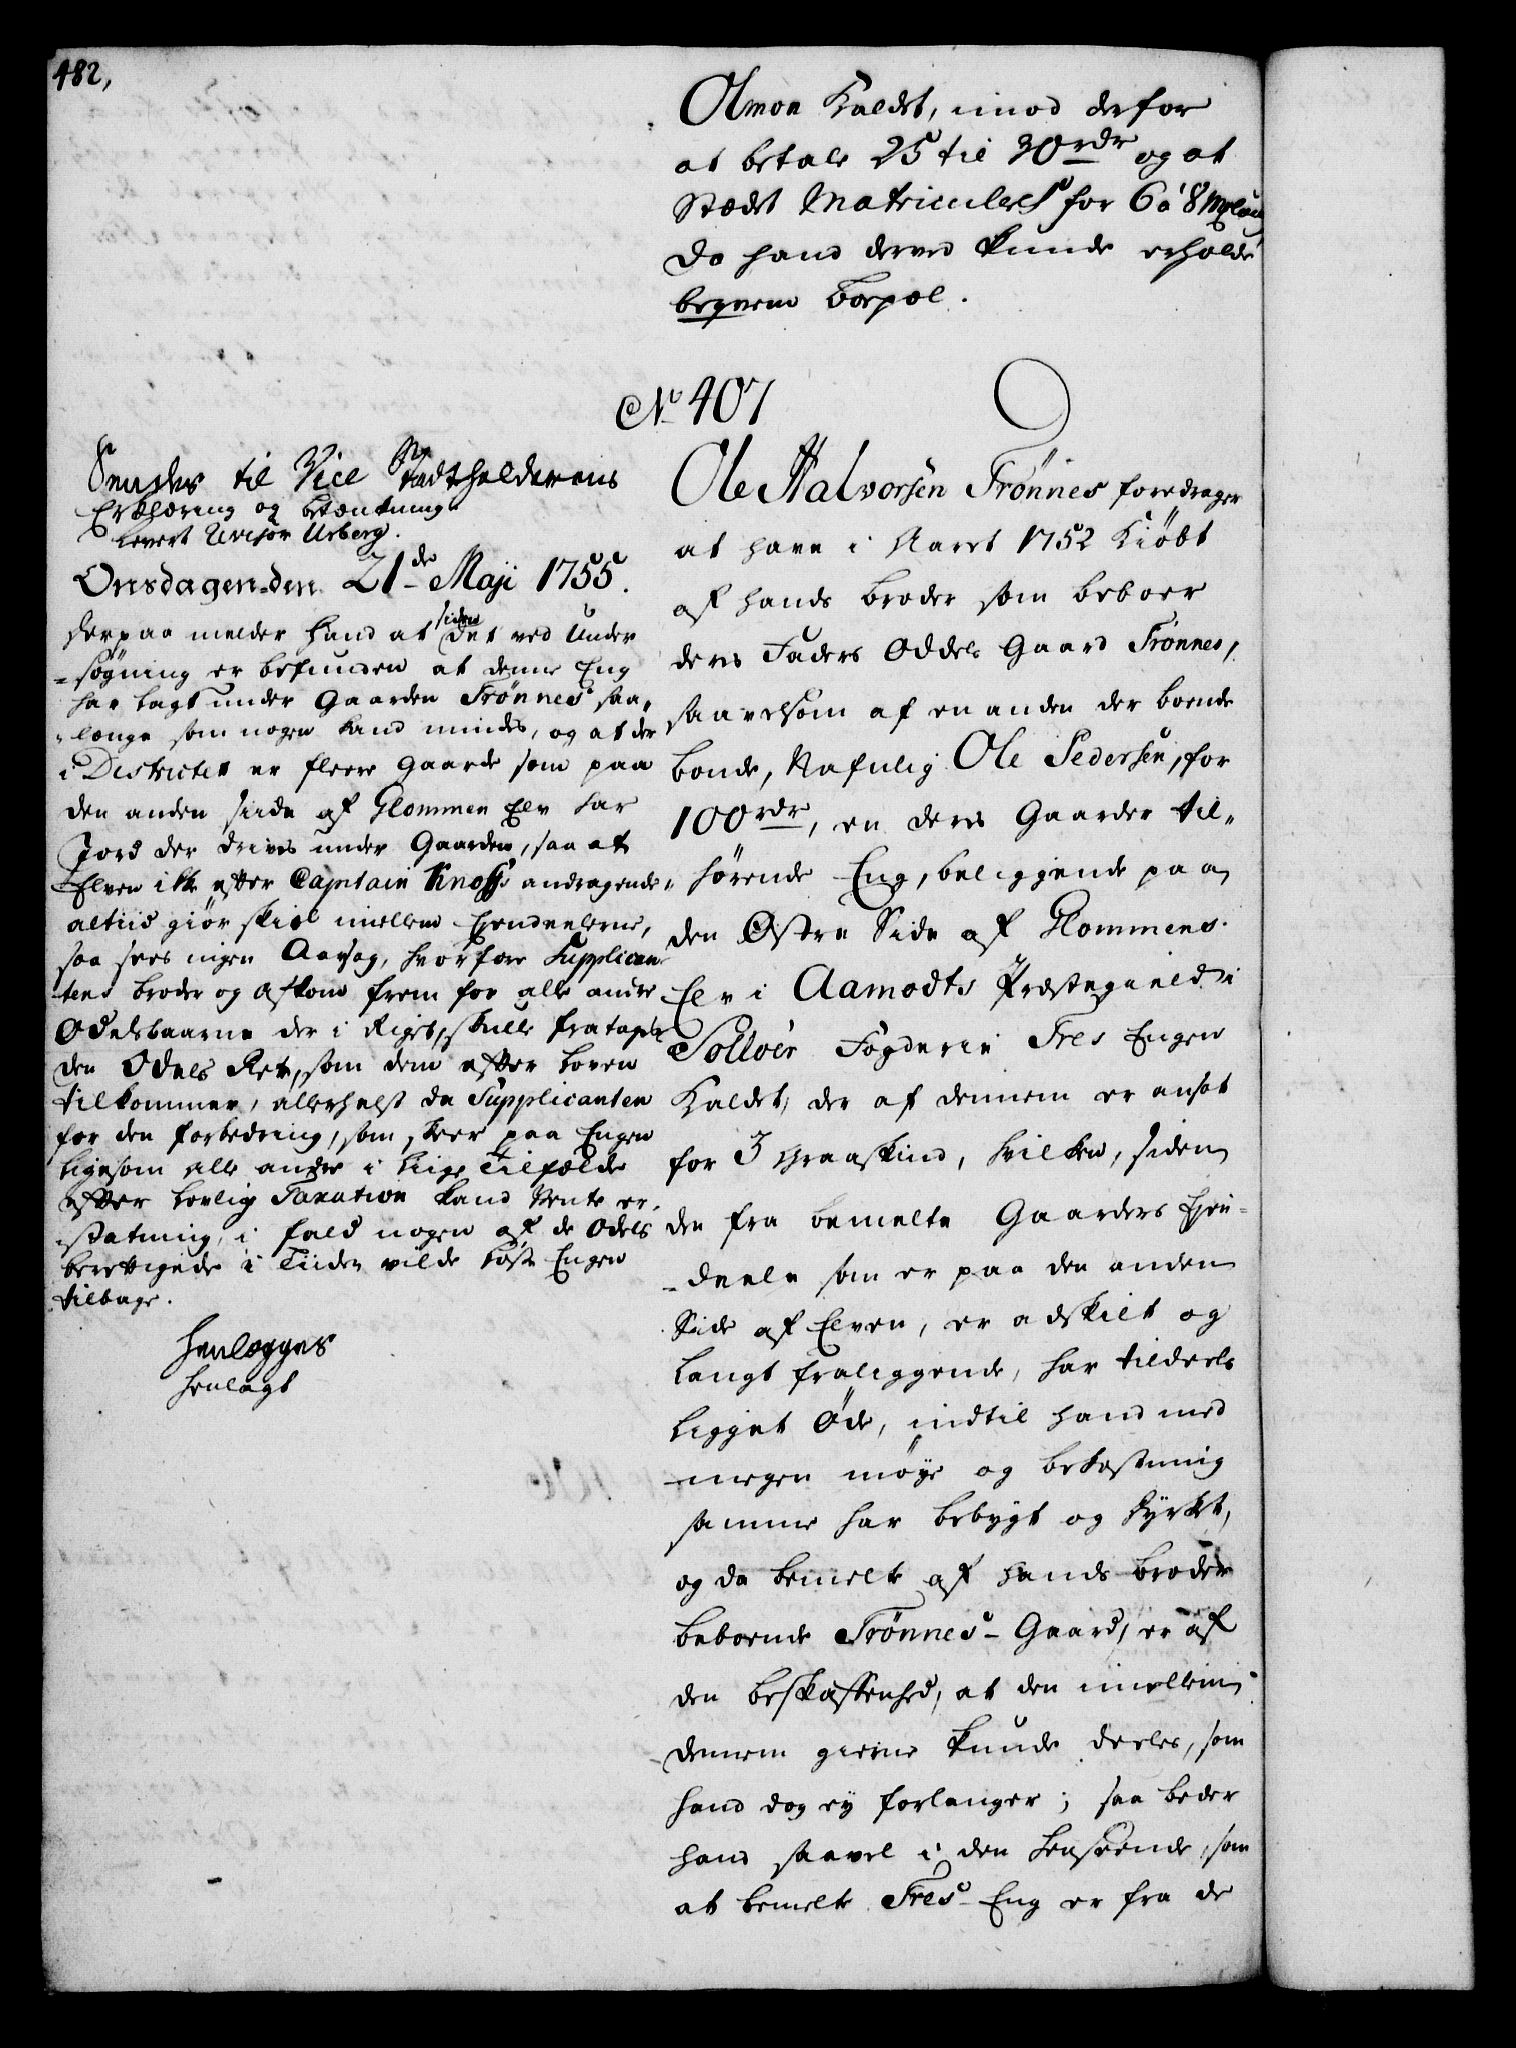 482,
Olmoa Kaldet, imod derfor
at betale 25 til 30 rdr og at
Stædet Matriculers for 6 a 8
da hand derved kunde erholde
beqvem Boepæl.
No 407
Ole Halvorsen Trønnes foredrager
at have i Aaret 1752 kiøbt
af hands Broder som beboer
deres Faders Oddels Gaard Trønnes,
saavelsom af en anden der boende
Bonde, Nafnlig Ole Pedersen, for
100 rdr, en deres Gaarder til-
hørende Eng, beliggende paa
den Østre Side af Glommens
Elv i Aamodts Præstegield i
Solløer Fogderie Tres Engen
kaldet, der af dennem er ansat
for 3 Graaskind, hvilken, siden
den fra bemelte Gaarders Eien-
-deele som er paa den anden
Side af Elven, er adskilt og
langt fraliggende, har tildeels
ligget Øde, indtil hand med
megen møye og bekostning
samme har bebygt og dyrket,
og da bemelte af hands Broder
beboende Trønnes-Gaard, er af
den beskaffenhed, at den imellem
dennem gierne kunde deeles, som
hand dog ey forlanger; saa beder
hand saavel i den henseende, som
at bemelte Tres-Eng er fra de
Sendes til Vice Stadtholderens
Erklæring og betænkning
Levert Revisor Urberg.
Onsdagen den 21de Maji 1755.
Herpaa melder hand at siden det ved Under
-søgning er befunden at denne Eng
har lagt under Gaarden Trønnes saa
-længe som nogen kand mindes, og at der
i Districtet er fleere Gaarde som paa
den anden siide af Glommen Elv har
Jord der drives under Gaarden, saa at
Elven ikke efter Captain Knoffs andragende
altiid giør skiel imellem Eiendeelerne,
saa sees ingen Aarsag, hvorfore Supplican
-tens broder og afkom frem for alle andre
Odelsbaarne der i Riget, skulle fratages
den Odels Ret, som dem efter Loven
tilkommer, allerhelst da Supplicanten
for den forbedring, som skeer paa Engen
ligesom alle andre i liige Tilfælde
efter lovlig Taxation kand vente er-
-statning, i fald nogen af de Odels
berettigede i Tiiden vilde løse Engen
tilbage.
Henlægges
henlagt